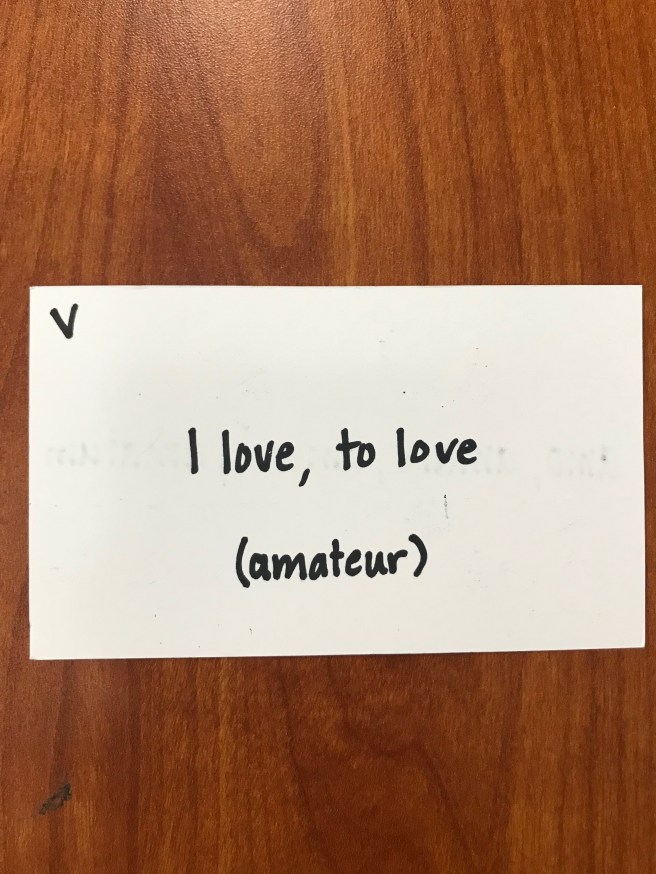 V
I love, to love
(amateur)